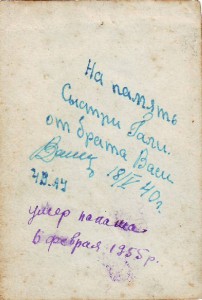 На память
Сыстри Гали.
от брата Васи
Васи 18/IV 40 г.
умер папаша
6 февраля 1955 г.